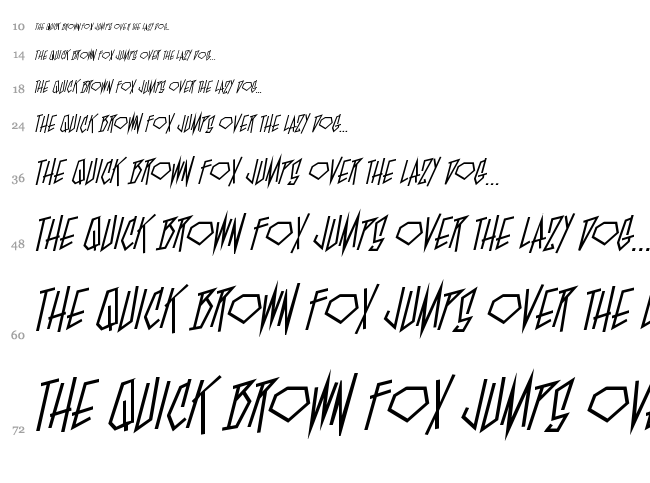 10 THE QUICK BROWN FOX JUMPS OVER THE LAZY DOG...
14 THE QUICK BROWN FOX JUMPS OVER THE LAZY DOG...
18 THE QUICK BROWN FOX JUMPS OVER THE LAZY DOG...
24 THE QUICK BROWN FOX JUMPS OVER THE LAZY DOG...
36 THE QUICK BROWN FOX JUMPS OVER THE LAZY DOG...
48 THE QUICK BROWN FOX JUMPS OVER THE LAZY DOG...
60 THE QUICK BROWN FOX JUMPS OVER THE L
72 THE QUICK BROWN FOX JUMPS OV